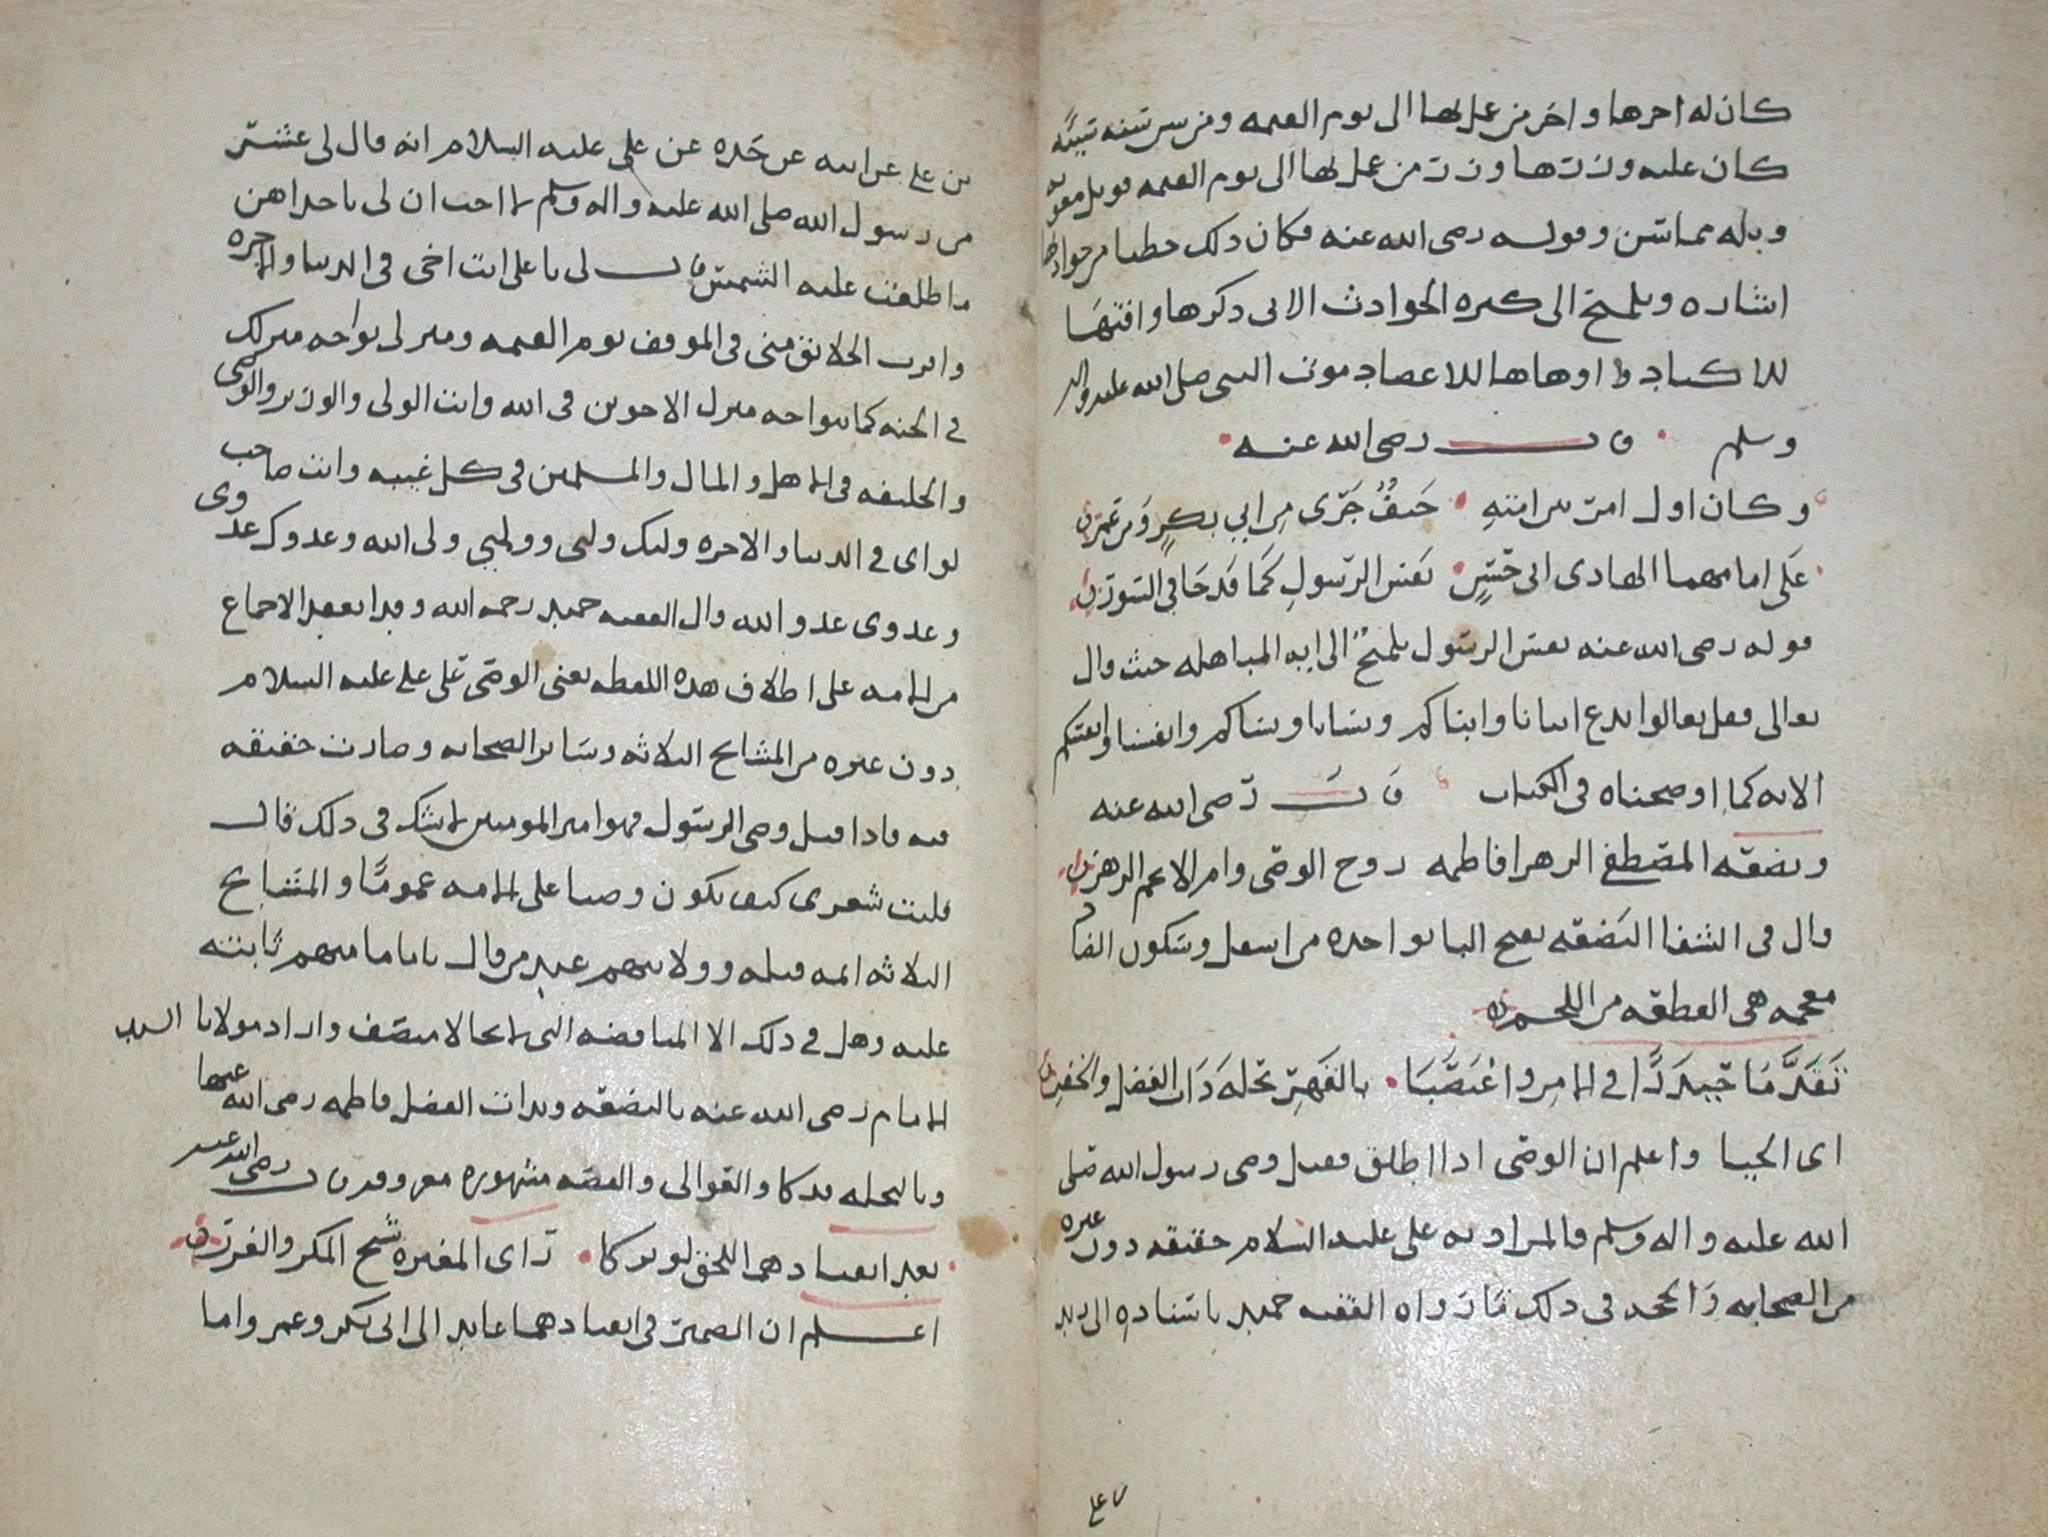 كان له اجرها واجر من عمل بها الى يوم القيمه ومن سن سنه سيئه
كان عليه وزرها ووزر من عمل بها الى يوم القيمه
وقوله رضى الله عنه فكان ذلك خطبا من حوادثها
اشاره وتلميح الى كثره الحوادث الاتى ذكرها وافتها
للاكباد واوهاها للاعضاد موت النبى صلى الله عليه واله
وسلم قال رضى الله عنه
وكان اول امر بين امته حيف جرى من ابي بكر ومن عمر
على امامهما الهادى ابى حسن نفس الرسول كما قد جا في السور
قوله رضى الله عنه نفس الرسول تلميح الى ايه المباهله حيث قال
تعالى فقل تعالوا ندع ابنانا وابناكم ونسانا ونساكم وانفسنا وانفسكم
الايه كما اوضحناه فى الكتاب قال رضى الله عنه
وبضعه المصطفى الزهرا فاطمه زوج الوصى وام الانجم الزهر
قال فى الشفا البضعه بفتح البا بواحده من اسفل وسكون الضاد
معجمه هى القطعه من اللحم
تقدما حيدرا في الامر واغتصبا بالقهر نحله ذات الفضل والخفر
اى الحيا واعلم ان الوصى اذا اطلق فقيل وصى رسول الله صلى
الله عليه واله وسلم فالمراد به على عليه السلام حقيقه دون غيره
من الصحابه والحجه في ذلك ما رواه الفقيه حميد باسناده الى زيد
بن على
بن على عن ابيه عن جده عن على عليه السلام انه قال لى عشر
من رسول الله صلى الله عليه واله وسلم ما احب ان لى باحداهن
ما طلعت عليه الشمس قال لى يا على انت اخى فى الدنيا والاخره
واقرب الخلائق منى فى الموقف يوم القيمه ومنزلى يواجه منزلك
في الجنه كما يتواجه منزل الاخوين فى الله وانت الولى والوزير والوصى
والخليفه فى الاهل والمال والمسلمين فى كل غيبه وانت صاحب
لواى في الدنيا والاخره وليك وليى ووليي ولى الله وعدوك عدوى
وعدوى عدو الله قال الفقيه حميد رحمه الله وقد انعقد الاجماع
من الامه على اطلاق هذه اللفظه يعنى الوصى على على عليه السلام
دون غيره من المشايخ الثلاثه وسائر الصحابه وصارت حقيقه
فيه فاذا قيل وصى الرسول فهو امير المومنين لا يشك فى ذلك قال
فليت شعرى كيف يكون وصيا على الامه عموما والمشايخ
الثلاثه ائمه قبله وولايتهم عند من قال بامامتهم ثابته
عليه وهل في ذلك الا المناقضه التى لا تخالا منصف واراد مولانا السيد
الامام رضى الله عنه بالبضعه وبذات الفضل فاطمه رضى الله عنها
وبالنحله فدكا والعوالى والقصه مشهوره معروفه قال رضى الله عنه
بعد انقيادهما للحق لو تركا راى المغيره شيخ المكر والغرر
اعلم ان الضمير فى انقيادهما عايد الى ابى بكر وعمر واما